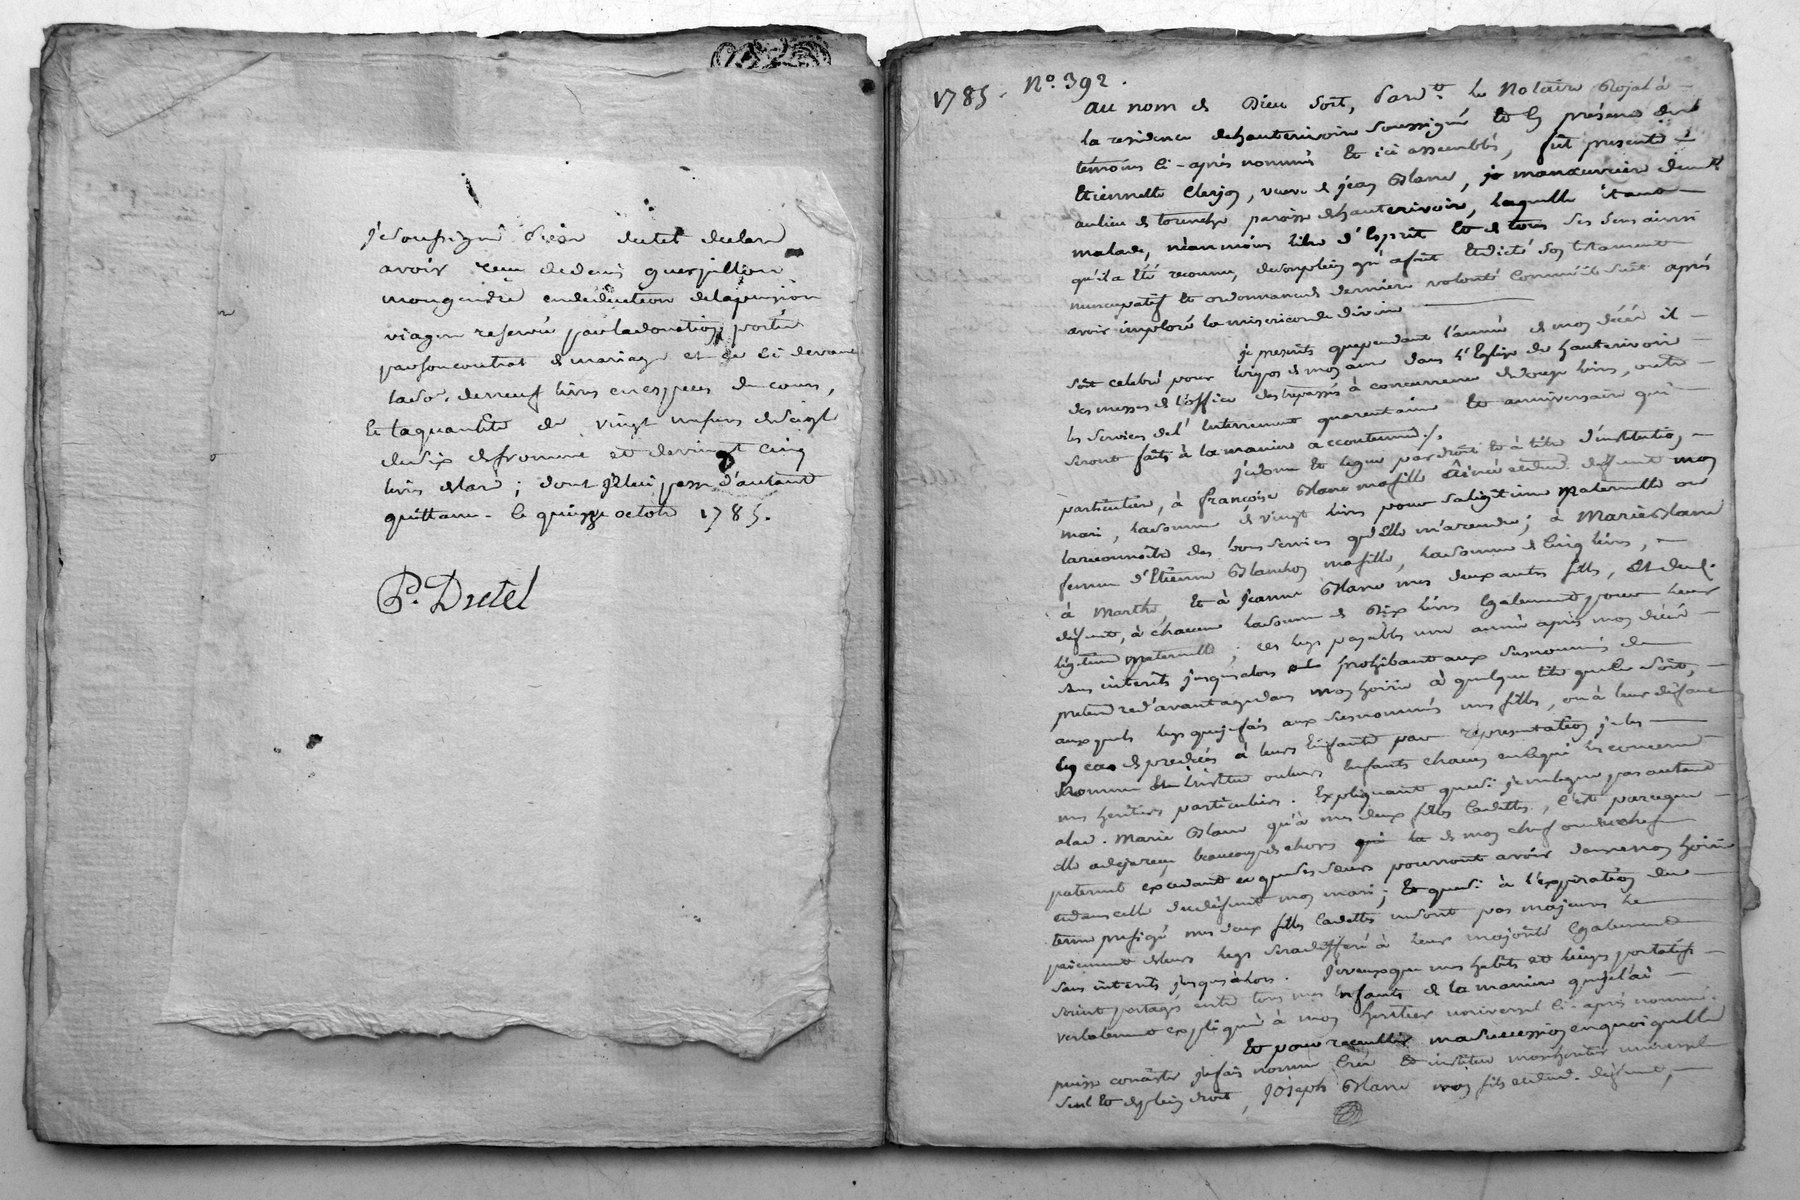 je soussigné Pierre Dutel declare
avoir reçu de denis guerpillion
mon gendre en deduction de la pension
viagere reservée par la donation portée
par son contrat de mariage et de ci devant
la so. de neuf livres en especes de cours,
Et la quantité de vingt mesures de seigle
de six de froment et de vingt cinq
livres de lard ; dont je lui passe d'autant
quittance. le quinze octobre 1785.
P. Dutel
1785. No. 392.
au nom de Dieu soit, pard.t le Notaire Royal à
la residence de hauterivoire soussigné et en présence des
témoins ci-après nommés et ici assemblés, fut presente
Etiennette Clerjon, veuve de jean Blanc, manœuvrier demt
au lieu de paroisse de hauterivoire, laquelle étant
malade, néanmoins libre d'Esprit Et de tous ses sens ainsi
qu'il a Eté reconnu, de son plein gré a fait Et dicté son testament
nuncupatif Et ordonnance de derniere volonté Comme s'ensuit après
avoir imploré la misericorde divine
je prescrits que pendant l'année de mon décés il
soit celebré pour le repos de mon ame dans l'Eglise de hauterivoire
des messes de l'office des trepassés à concurrence de douze livres, outre
les services de l'Enterrement quarantaine Et anniversaire qui
seront faits à la maniere accoutumée.
je donne Et legue par droit Et à titre d'institution
particuliere, à françoise Blanc ma fille ainée et dud. defunt mon
mari, la somme de vingt livres pour sa legitime maternelle ou
la reconnoitre des bons services qu'elle m'a rendus ; à Marie Blanc
femme d'Etienne Blanchon ma fille, la somme de cinq livres,
à Marthe, Et à Jeanne Blanc mes deux autres filles, Et dud.
defunt, à chacune la somme de dix livres Egalement pour leur
legitime maternelle ; ces legs payables une année après mon décés
sans interêts jusqu'alors prohibant aux susnommées de
pretendre d'avantage dans mon hoirie à quelque titre que ce soit,
auxquels legs que je fais aux susnommées mes filles, ou à leur défaut
En cas de predécés à leurs Enfants par representation je les
nomme Et institue ou leurs Enfants chacun en ce qui les concerne
mes heritiers particuliers. Expliquant que si je ne legue pas autant
a lad. Marie Blanc qu'à mes deux filles Cadettes, c'est parceque
elle a deja reçu beaucoup de choses de mon chef ou du chef
paternel excedant ce que ses sœurs pourront avoir dans mon hoirie
et dans celle dud. defunt mon mari ; Et que si à l'expiration du
terme prefigé mes deux filles Cadettes ne sont pas majeures le
paiement de leurs legs sera differé à leur majorité Egalement
sans interêts jusqu'alors. Je veux que mes habits et linges portatifs
soient partagés entre tous mes Enfants de la maniere que je l'ai
verbalement expliqué à mon heritier universel ci-après nommé.
Et pour recueillir ma succession en quoi qu'elle
puisse consister je fais nomme Crée Et institue mon heritier universel
seul Et de plein droit, Joseph Blanc mon fils et dud. defunt,